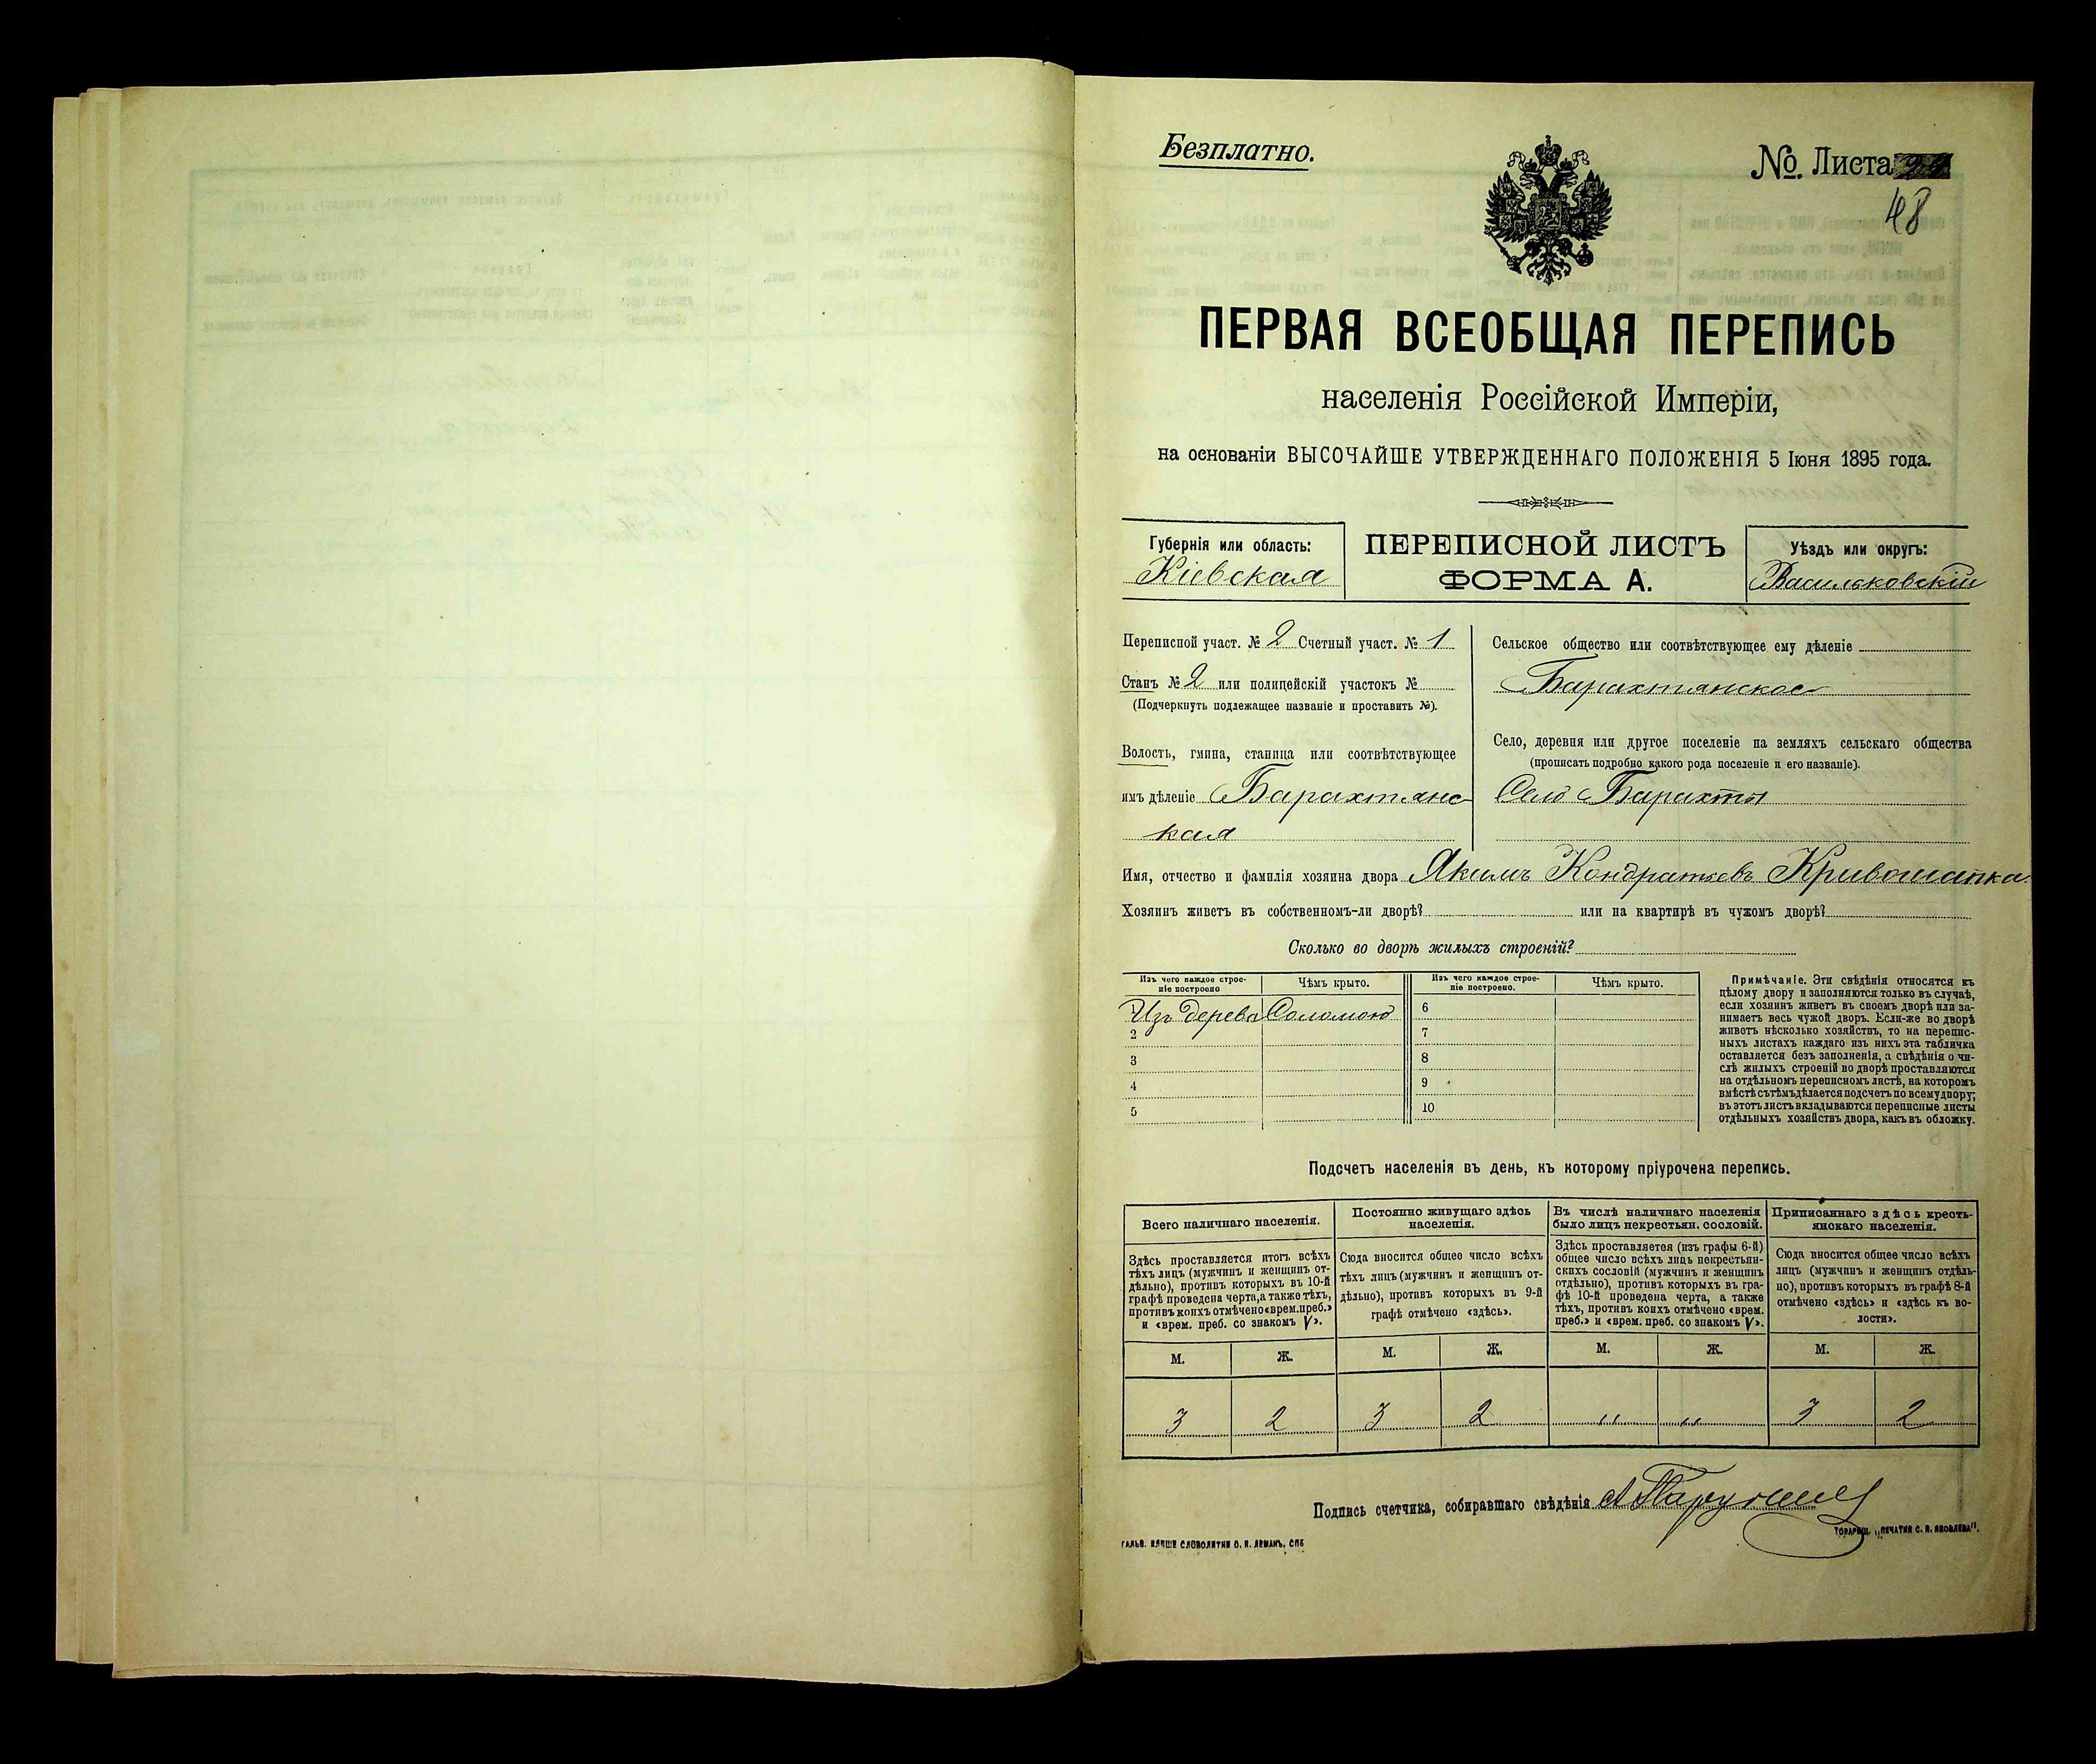 Безплатно.
№. Листа
48
ПЕРВАЯ ВСЕОБЩАЯ ПЕРЕПИСЬ
населенія Россійской Имперіи,
на основаніи ВЫСОЧАЙШЕ УТВЕРЖДЕННАГО ПОЛОЖЕНІЯ 5 Іюня 1895 года.
Губернія или область:
Кіевская
ПЕРЕПИСНОЙ ЛИСТЪ
ФОРМА А.
Уѣздъ или округъ:
Васильковскій
Переписной участ. № 2 Счетный участ. № 1
Станъ № 2 или полицейскій участокъ №
(Подчеркнуть подлежащее названіе и проставить №).
Волость, гмина, станица или соотвѣтствующее
имъ дѣленіе Барахтянс
кая
Сельское общество или соотвѣтствующее ему дѣленіе
Барахтянское
Село, деревня или другое поселеніе на земляхъ сельскаго общества
(прописать подробно какого рода поселеніе и его названіе).
Село Барахты
Имя, отчество и фамилія хозяина двора Якимъ Кондратьевъ Кривошапка
Хозяинъ живетъ въ собственномъ-ли дворѣ? или на квартирѣ въ чужомъ дворѣ?
Сколько во дворѣ жилыхъ строеній?
Изъ чего каждое строе-
ніе построено
Чѣмъ крыто.
Изъ чего каждое строе-
ніе построено.
Чѣмъ крыто.
Изъ дерева Соломою
2
3
4
5
6
7
8
9
10
Примѣчаніе. Эти свѣдѣнія относятся къ
цѣлому двору и заполняются только въ случаѣ,
если хозяинъ живетъ въ своемъ дворѣ или за-
нимаетъ весь чужой дворъ. Если-же во дворѣ
живетъ нѣсколько хозяйствъ, то на перепис-
ныхъ листахъ каждаго изъ нихъ эта табличка
оставляется безъ заполненія, а свѣдѣнія о чи-
слѣ жилыхъ строеній во дворѣ проставляются
на отдѣльномъ переписномъ листѣ, на которомъ
вмѣстѣ съ тѣмъ дѣлается подсчетъ по всему двору;
въ этотъ листъ вкладываются переписные листы
отдѣльныхъ хозяйствъ двора, какъ въ обложку.
Подсчетъ населенія въ день, къ которому пріурочена перепись.
Всего наличнаго населенія.
Здѣсь проставляется итогъ всѣхъ
тѣхъ лицъ (мужчинъ и женщинъ от-
дѣльно), противъ которыхъ въ 10-й
графѣ проведена черта, а также тѣхъ,
противъ коихъ отмѣчено «врем. преб.»
и «врем. преб. со знакомъ V».
Постоянно живущаго здѣсь
населенія.
Сюда вносится общее число всѣхъ
тѣхъ лицъ (мужчинъ и женщинъ от-
дѣльно), противъ которыхъ въ 9-й
графѣ отмѣчено «здѣсь».
Въ числѣ наличнаго населенія
было лицъ некрестьян. сословій.
Здѣсь проставляется (изъ графы 6-й)
общее число всѣхъ лицъ некрестьян-
скихъ сословій (мужчинъ и женщинъ
отдѣльно), противъ которыхъ въ гра-
фѣ 10-й проведена черта, а также
тѣхъ, противъ коихъ отмѣчено «врем.
преб.» и «врем. преб. со знакомъ V».
Приписаннаго здѣсь кресть-
янскаго населенія.
Сюда вносится общее число всѣхъ
лицъ (мужчинъ и женщинъ отдѣль-
но), противъ которыхъ въ графѣ 8-й
отмѣчено «здѣсь» и «здѣсь къ во-
лости».
М. Ж. М. Ж. М. Ж. М. Ж.
3 2 3 2 " " 3 2
Подпись счетчика, собиравшаго свѣдѣнія
ГАЛЬВ. КЛИШЕ СЛОВОЛИТНИ О. И. ЛЕМАНЪ, СПБ
ТОВАРИЩ. „ПЕЧАТНЯ С. П. ЯКОВЛЕВА".